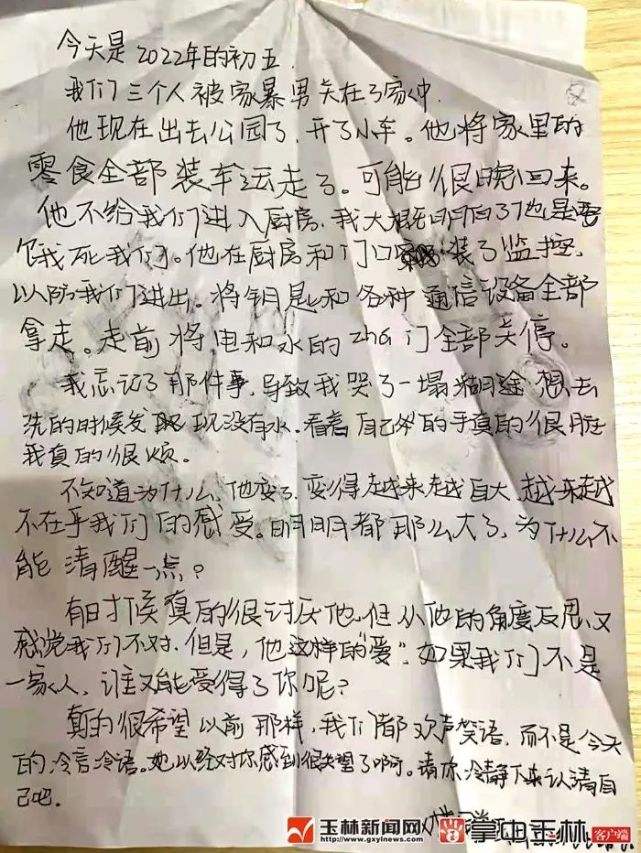 今天是2022年的初五.
我们三个人被家暴男关在了家中.
他现在出去公园了,开了小车。他将家里的
零食全部装车运走了。可能很晚回来。
他不给我们进入厨房,我大概明白了他是要
饿死我们。他在厨房和门口装了监控,
以防我们进出。将钥匙和各种通信设备全部
拿走。走前将电和水的zha门全部关停。
我忘记了那件事,导致我哭了一塌糊涂想去
洗的时候发现没有水.看着自己的手真的很脏
我真的很烦。
不知道为什么,他变了.变得越来越自大.越来越
不在乎我们的感受。明明都那么大了,为什么不
能清醒一点?
有时候真的很讨厌他.但从他的角度反思又
感觉我们不对.但是,他这样的"爱".如果我们不是
一家人,谁又能受得了你呢?
真的很希望以前那样,我们都欢声笑语.而不是今天
的冷言冷语。她以经对你感到很失望了啊。请你冷静下来认清自
己吧.
玉林新闻网 www.gxylnews.com
掌中玉林 客户端